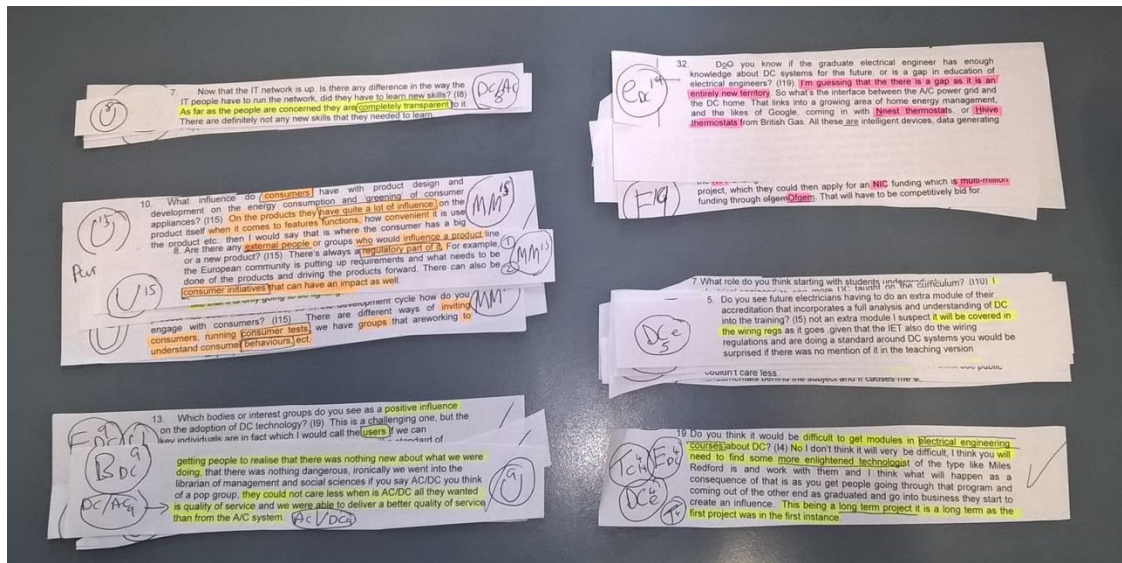 7. Now that the IT network is up. Is there any difference in the way the
IT people have to run the network, did they have to learn new skills? (I8)
As far as the people are concerned they are completely transparent to it.
There are definitely not any new skills that they needed to learn.
8
DC/AC
8
10. What influence do consumers have with product design and
development on the energy consumption and greening of consumer
appliances? (I15) On the products they have quite a lot of influence on the
product itself when it comes to features functions, how convenient it is use
the product etc.. then I would say that is where the consumer has a big
U15
MM15
8. Are there any external people or groups who would influence a product line
or a new product? (I15) There's always a regulatory part of it. For example,
the European community is putting up requirements and what needs to be
done of the products and driving the products forward. There can also be
consumer initiatives that can have an impact as well.
U15
1
MM15
2
development cycle how do you
engage with consumers? (I15) There are different ways of inviting
consumers, running consumer tests, we have groups that areworking to
understand consumer behaviours, ect.
U
MM
13. Which bodies or interest groups do you see as a positive influence
on the adoption of DC technology? (I9) This is a challenging one, but the
key individuals are in fact which I would call the users if we can
standard of
BDC9
getting people to realise that there was nothing new about what we were
doing, that there was nothing dangerous, ironically we went into the
librarian of management and social sciences if you say AC/DC you think
of a pop group, they could not care less when is AC/DC all they wanted
is quality of service and we were able to deliver a better quality of service
than from the A/C system.
AC/DC9
DC/AC9
U9
32. DoO you know if the graduate electrical engineer has enough
knowledge about DC systems for the future, or is a gap in education of
electrical engineers? (I19). I'm guessing that the there is a gap as it is an
entirely new territory. So what's the interface between the A/C power grid and
the DC home. That links into a growing area of home energy management,
and the likes of Google, coming in with Nnest thermostats, or Hhiive
thermostats from British Gas. All these are intelligent devices, data generating
eDC19
project, which they could then apply for an NIC funding which is multi-million
funding through ofgemOfgem. That will have to be competitively bid for.
F19
7. What role do you think starting with students
curriculum? (I10) I
5. Do you see future electricians having to do an extra module of their
accreditation that incorporates a full analysis and understanding of DC
into the training? (I5) not an extra module I suspect it will be covered in
the wiring regs as it goes ,given that the IET also do the wiring
regulations and are doing a standard around DC systems you would be
surprised if there was no mention of it in the teaching version
DCe
5
couldn't care less.
public
behind the subject and it causes me
19 Do you think it would be difficult to get modules in electrical engineering
courses about DC? (I4) No I don't think it will very be difficult, I think you will
need to find some more enlightened technologist of the type like Miles
Redford is and work with them and I think what will happen as a
consequence of that is as you get people going through that program and
coming out of the other end as graduated and go into business they start to
create an influence. This being a long term project it is a long term as the
first project was in the first instance
EDC4
DCe4